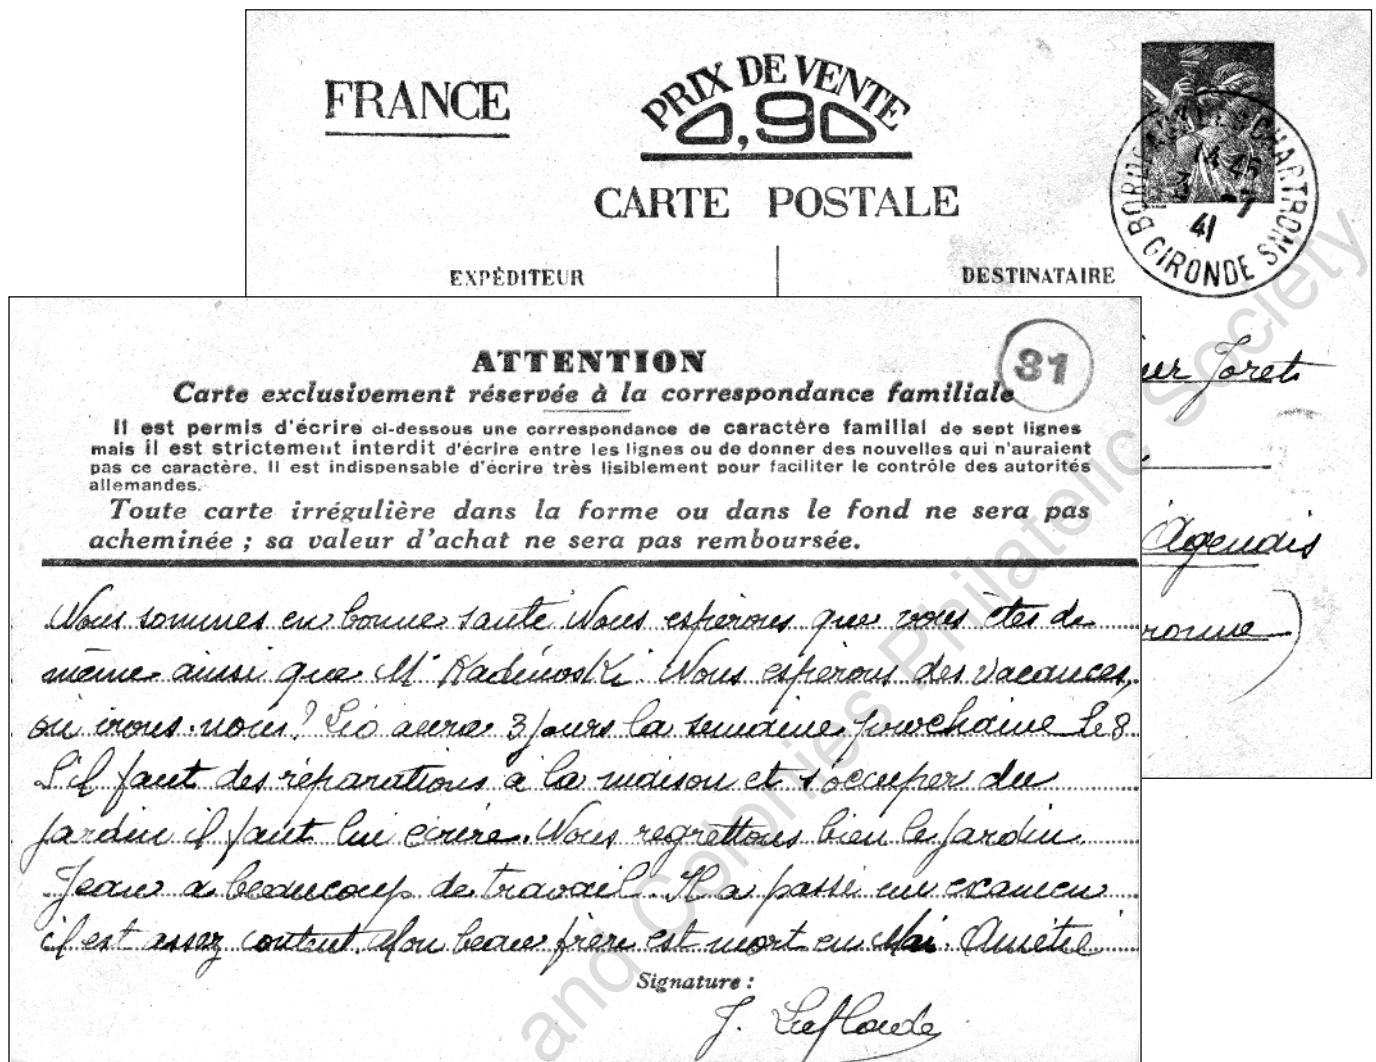 FRANCE
PRIX DE VENTE
0,90
CARTE POSTALE
EXPÉDITEUR
DESTINATAIRE
BORDEAUX CHARTRONS
14 45
3 -7
41
GIRONDE
Joret
Agenais
ronne)
ATTENTION
31
Carte exclusivement réservée à la correspondance familiale
Il est permis d'écrire ci-dessous une correspondance de caractère familial de sept lignes
mais il est strictement interdit d'écrire entre les lignes ou de donner des nouvelles qui n'auraient
pas ce caractère. Il est indispensable d'écrire très lisiblement pour faciliter le contrôle des autorités
allemandes.
Toute carte irrégulière dans la forme ou dans le fond ne sera pas
acheminée ; sa valeur d'achat ne sera pas remboursée.
Nous sommes en bonne santé Nous espérons que vous êtes de
même ainsi que Mr Nous espérons des vacances,
où irons-nous? Léo aura 3 jours la semaine prochaine Le 8
S'il faut des réparations à la maison et s'occuper du
jardin il faut lui écrire. Nous regrettons bien le jardin.
Jean a beaucoup de travail. Il a passé un examen
il est assez content. Mon beau frère est mort en Mai. Amitié
Signature :
J.
and Colonies Philatelic Society